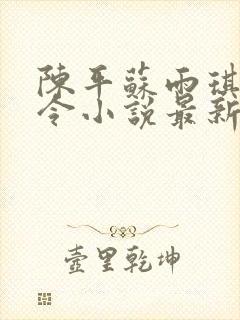 陳平蘇雨琪
令小說最新
壺里乾坤